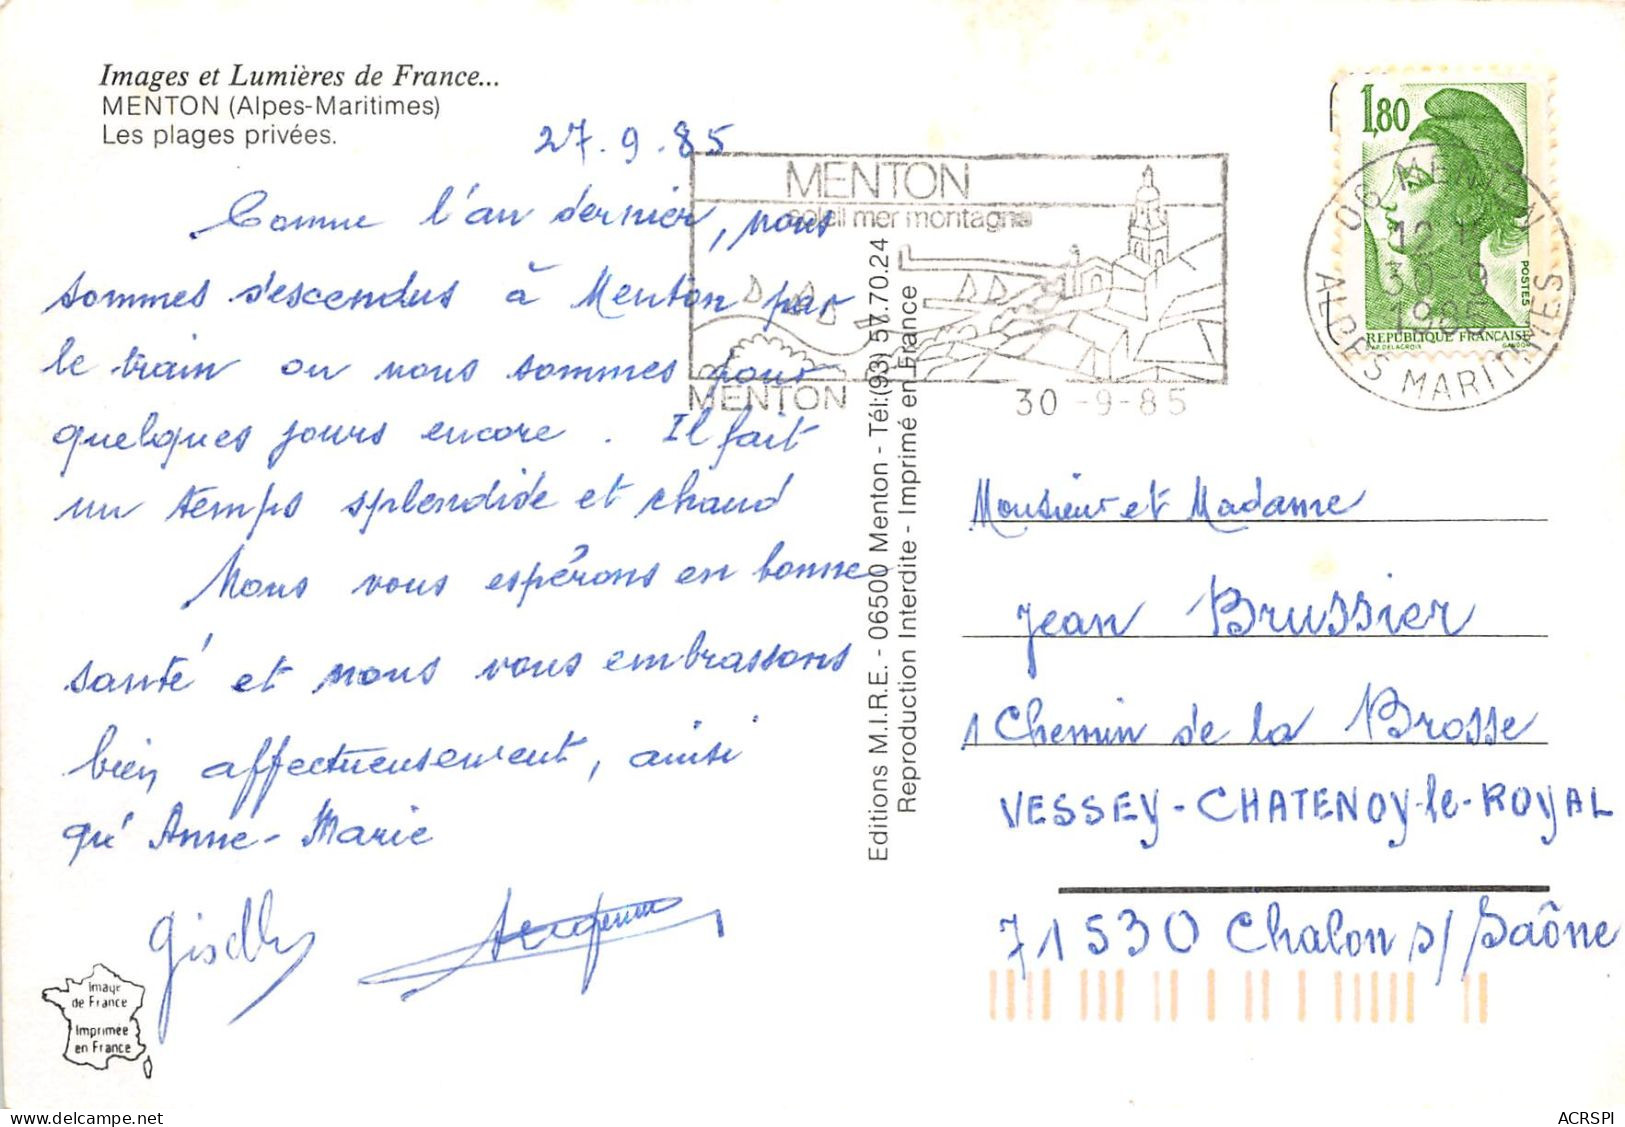 Images et Lumières de France...
MENTON (Alpes-Maritimes)
Les plages privées.
27.9.85
Comme l'an dernier, nous
sommes descendus à Menton par
le train où nous sommes pour
quelques jours encore. Il fait
un temps splendide et chaud
Nous vous espérons en bonne
santé et nous vous embrassons
bien affectueusement, ainsi
qu'Anne-Marie
Image
de France
Imprimée
en France
Editions M.I.R.E. - 06500 Menton - Tél:(93) 57.70.24
Reproduction Interdite - Imprimé en France
MENTON
soleil mer montagne
MENTON
30 -9-85
1,80
POSTES
REPUBLIQUE FRANÇAISE
D'AP. DELACROIX GANDON
06 MENTON
12 H
30 9
1985
ALPES MARITIMES
Monsieur et Madame
Jean Brussier
1 Chemin de la Brosse
VESSEY-CHATENOY-le-ROYAL
71530 Chalon s/ Saône
ACRSPI